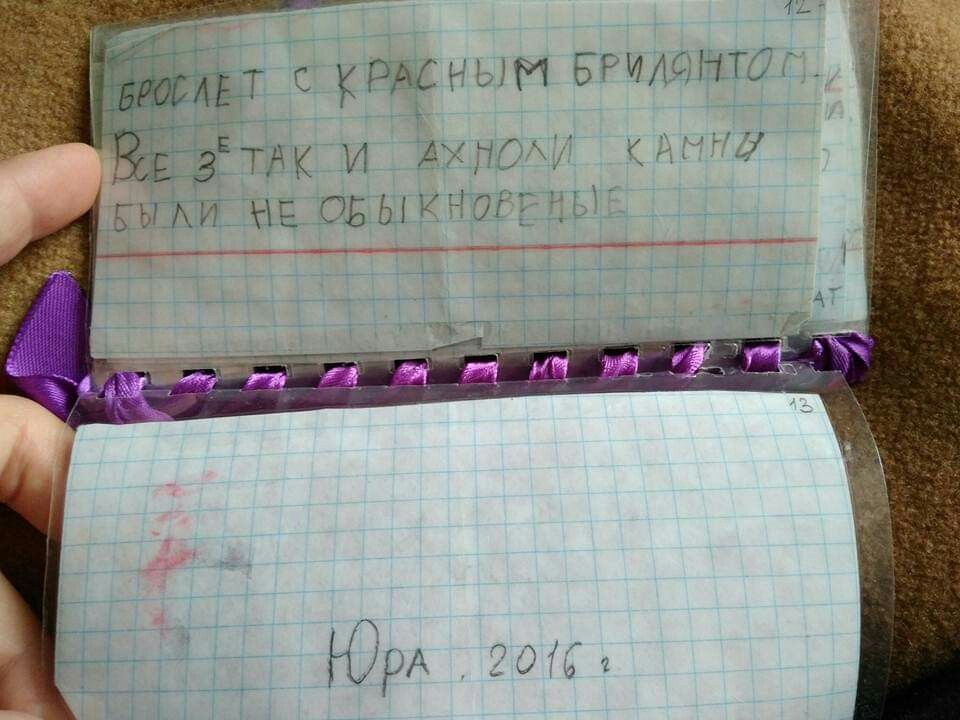 12
БРОСЛЕТ С КРАСНЫМ БРИЛЯНТОМ.
ВСЕ ЗЕ ТАК И АХНОЛИ КАМНИ
БЫЛИ НЕ ОБЫКНОВЕНЫЕ
АТ
13
ЮРА. 2016 г